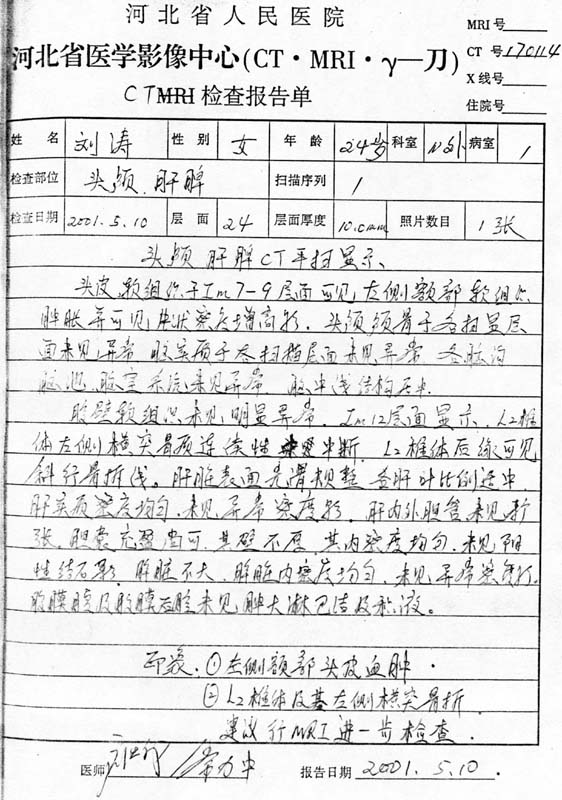 河北省人民医院
MRI号
河北省医学影像中心(CT·MRI·γ—刀)
CT 号170114
X 线号
CTMRI 检查报告单
住院号
姓 名 刘涛 性别 女 年龄 24岁 科室 N外 病室 1
检查部位 头颅.肝脾 扫描序列 1
检查日期 2001.5.10 层面 24 层面厚度 10.0mm 照片数目 1张
头颅肝脾CT平扫显示、
头皮软组织于Im7-9层面可见左侧额部软组织
肿胀并可见片状密度增高影.头颅颅骨于各扫描层
面未见异常 脑实质于各扫描层面未见异常 各脑沟
脑池.脑室系统未见异常.脑中线结构居中.
腹壁软组织未见明显异常.Im12层面显示.L2椎
体左侧横突骨质连续性中断.L2椎体后缘可见
斜行骨折线。肝脏表面光滑规整 各肝叶比例适中
肝实质密度均匀.未见异常密度影.肝内外胆管未见扩
张.胆囊充盈尚可.其壁不厚.其内密度均匀.未见阳
性结石影.脾脏不大.脾脏内密度均匀.未见异常密度影.
腹膜腔及腹膜后腔未见肿大淋巴结及积液。
印象:①左侧额部头皮血肿.
②L2椎体及其左侧横突骨折.
建议行MRI进一步检查.
医师 报告日期 2001.5.10.